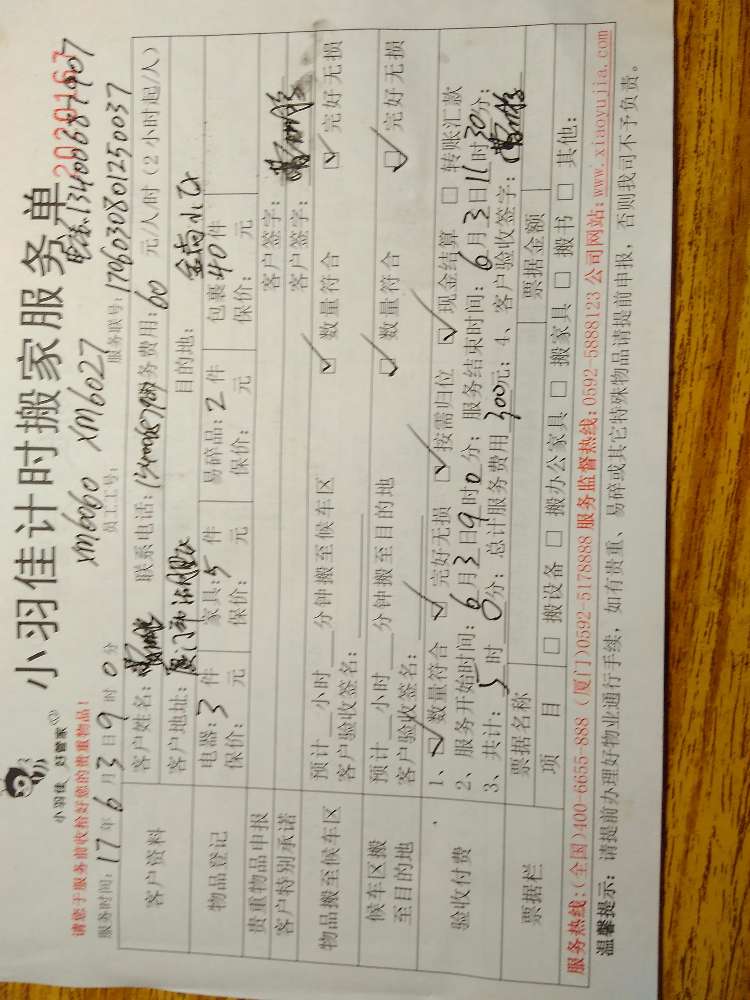 小羽佳计时搬家服务单
2020167
小羽佳、好管家
XM6060 XM6027
电话:13400687907
请您于服务前收拾好您的贵重物品!
服务时间: 17 年 6 月 3 日 9 时 0 分
员工工号:
服务联号: 170603080125003​7
客户资料
客户姓名:
联系电话:
服务费用: 60 元/人/时 (2 小时起/人)
客户地址: 厦门市
目的地: 金尚小区
物品登记
电器: 3 件 家具: 5 件 易碎品: 2 件 包裹: 40 件
保价: 元 保价: 元 保价: 元 保价: 元
贵重物品申报
客户签字:
客户特别承诺
客户签字:
物品搬至候车区
预计 小时 分钟搬至候车区 ☑ 数量符合 ☑ 完好无损
客户验收签名:
候车区搬至目的地
预计 小时 分钟搬至目的地 ☑ 数量符合 ☑ 完好无损
客户验收签名:
验收付费
1、☑ 数量符合 ☑ 完好无损 ☑ 按需归位 ☑ 现金结算 □ 转账汇款
2、服务开始时间: 6 月 3 日 9 时 0 分; 服务结束时间: 6 月 3 日 11 时 30 分;
3、共计: 5 时 0 分; 总计服务费用 300 元; 4、客户验收签字:
票据栏
票据名称 票据金额
项 目 □ 搬设备 □ 搬办公家具 □ 搬家具 □ 搬书 □ 其他:
服务热线:(全国)400-6655-888 (厦门)0592-5178888 服务监督热线:0592-5888123 公司网站:www.xiaoyujia.com
温馨提示: 请提前办理好物业通行手续, 如有贵重、易碎或其它特殊物品请提前申报, 否则我司不予负责。